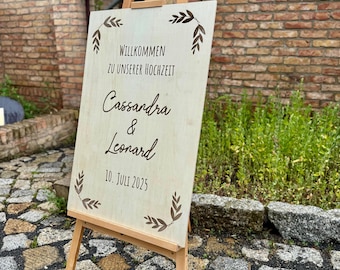 Willkommen
zu unserer Hochzeit
Cassandra
&
Leonard
10. Juli 2025